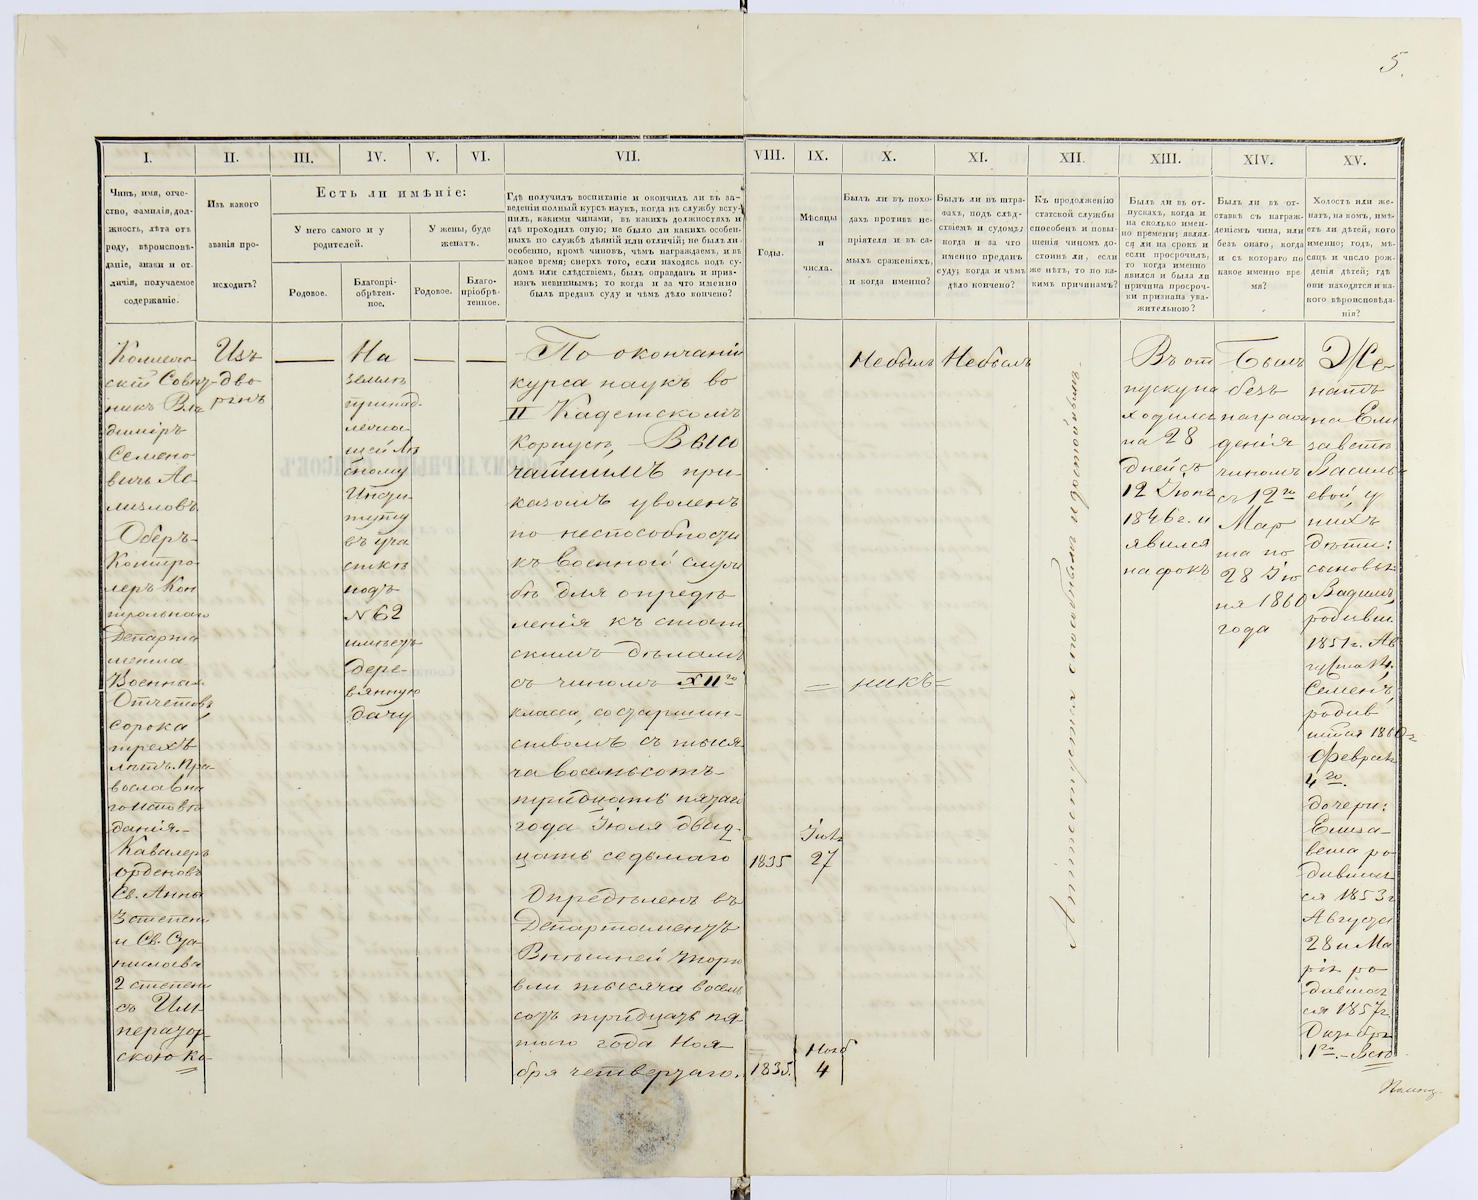 5.
I.
II.
III.
IV.
V.
VI.
VII.
VIII.
IX.
X.
XI.
XII.
XIII.
XIV.
XV.
Чинъ, имя, отче-
ство, фамилія, дол-
жность, лѣта отъ
роду, вѣроисповѣ-
даніе, знаки и от-
личія, получаемое
содержаніе.
Изъ какого
званія про-
исходитъ?
Есть ли имѣніе:
У него самого и у
родителей.
У жены, буде
женатъ.
Родовое.
Благопрі-
обрѣтен-
ное.
Родовое.
Благо-
пріобрѣ-
тенное.
Гдѣ получилъ воспитаніе и окончилъ ли въ за-
веденіи полный курсъ наукъ, когда въ службу всту-
пилъ, какими чинами, въ какихъ должностяхъ и
гдѣ проходилъ оную; не было ли какихъ особен-
ныхъ по службѣ дѣяній или отличій; не былъ ли
особенно, кромѣ чиновъ, чѣмъ награждаемъ, и въ
какое время; сверхъ того, если находясь подъ су-
домъ или слѣдствіемъ, былъ оправданъ и приз-
нанъ невиннымъ; то когда и за что именно
былъ преданъ суду и чѣмъ дѣло кончено?
Годы.
Мѣсяцы
и
числа.
Былъ ли въ похо-
дахъ противъ не-
пріятеля и въ са-
мыхъ сраженіяхъ,
и когда именно?
Былъ ли въ штра-
фахъ, подъ слѣд-
ствіемъ и судомъ;
когда и за что
именно преданъ
суду; когда и чѣмъ
дѣло кончено?
Къ продолженію
статской службы
способенъ и повы-
шенія чиномъ до-
стоинъ ли, если
же нѣтъ, то по ка-
кимъ причинамъ?
Былъ ли въ от-
пускахъ, когда и
на сколько имен-
но времени; являл-
ся ли на срокъ и
если просрочилъ,
то когда именно
явился и была ли
причина просроч-
ки признана ува-
жительною?
Былъ ли въ от-
ставкѣ съ награж-
деніемъ чина, или
безъ онаго, когда
и съ котораго по
какое именно вре-
мя?
Холостъ или же-
натъ, на комъ, имѣ-
етъ ли дѣтей, кого
именно; годъ, мѣ-
сяцъ и число рож-
денія дѣтей; гдѣ
они находятся и ка-
кого вѣроисповѣда-
нія?
Коллеж-
скій Совѣт-
никъ Вла
диміръ
Семено
вичъ Ас-
ламовъ
Оберъ-
Контро-
леръ Кон
трольнаго
Департа
мента
Военныхъ
Отчетовъ,
сорока
трехъ
лѣтъ. Пра-
вославна
го исповѣ
данія.-
Кавалеръ
орденовъ
Св. Анны
3 степени
и Св. Ста-
нислава
2 степени
съ Им-
ператор-
скою ко-
Изъ
дво-
рянъ
На
землѣ
принад-
лежа-
щей Лѣ
сному
Инсти-
туту
въ уча
сткѣ
подъ
№ 62
имѣетъ
дере-
вянную
дачу
По окончаніи
курса наукъ во
II Кадетскомъ
Корпусѣ, Высо
чайшимъ при-
казомъ уволенъ
по неспособности
къ военной служ
бѣ для опредѣ
ленія къ стат
скимъ дѣламъ
съ чиномъ XIIго
класса, со старшин-
ствомъ съ тыся
ча восемьсотъ
тридцать пятаго
года Іюля двад-
цать седьмаго
Опредѣленъ въ
Департаментъ
Внѣшней торго
вли тысяча восемь
сотъ тридцать пя-
таго года Ноя-
бря четвертаго.
1835
Іюля
27
1835.
Нояб
4
Небылъ
Небылъ
= никъ =
Аттестовался способнымъ и достойнымъ
Въ от
пуску на
ходился
на 28
дней съ
12 Іюня
1846 г. и
явился
на срокъ
Былъ
безъ
награж
денія
чиномъ
съ 12го
Мар
та по
28 Ію
ня 1860
года
Же-
натъ
на Ели
заветѣ
Василь-
евой, у
нихъ
дѣти:
сыновья
Вадимъ,
родивш.
1851 г. Ав
густа 14,
Семенъ,
родив
шійся 1860 г
Февраля
4го.
дочери:
Елиза-
вета ро
дившая
ся 1853 г
Августа
28 и Ма
рія ро
дившая
ся 1857 г.
Октября
1го.- Всѣ